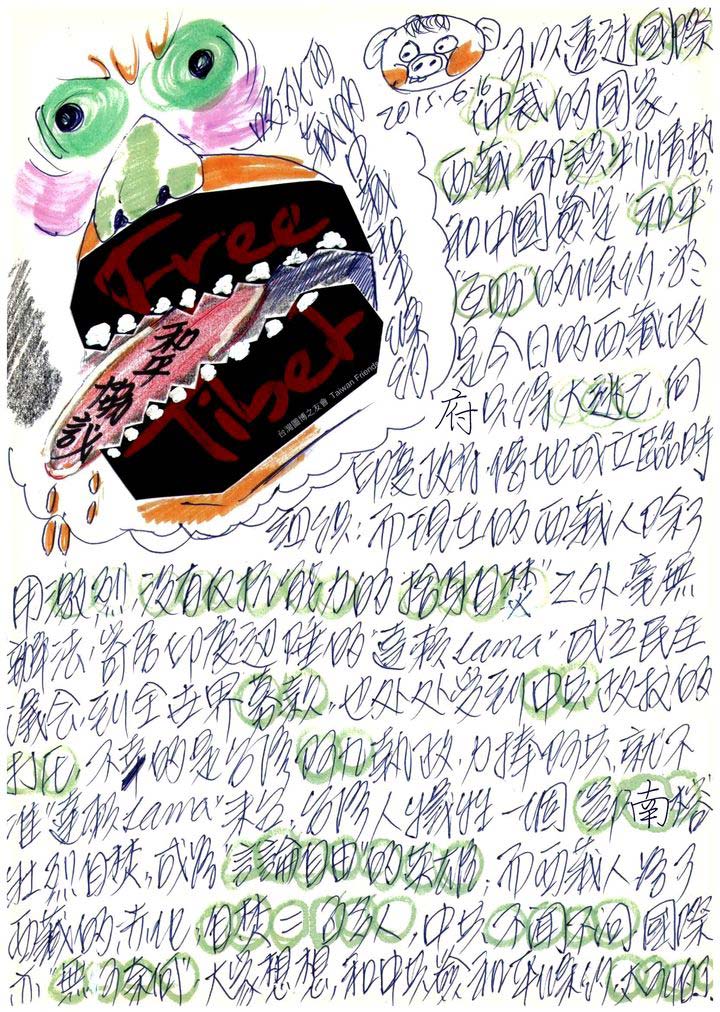 可以透过國際
2015.6.16
仲裁的國家,
西藏卻誤判情势
和中國簽定"和平"
的條約,於
是今日的西藏政
府只得大逃亡,向
印度政府借地成立臨時
組織;而現在的西藏人除了
用激烈,没有反抗能力的捨身自焚"之外毫無
辦法,寄居印度迴陸的"達賴Lama"成立民主
議会,到全世界募款,也处处受到中共政权的
打压,不幸的是台湾的執政,力捧中共,就不
准"達賴Lama"來台,台湾人犧牲一個"鄭南榕
壯烈自焚,成為"言論自由"的英雄;而西藏人為了
西藏的赤化,自焚二百多人,中共不聞不問國際
亦"無可奈何"大家想想,和中共簽和平條約,
西藏和平條約
Free
Tibet
和平協議
台灣圖博之友會 Taiwan Friends